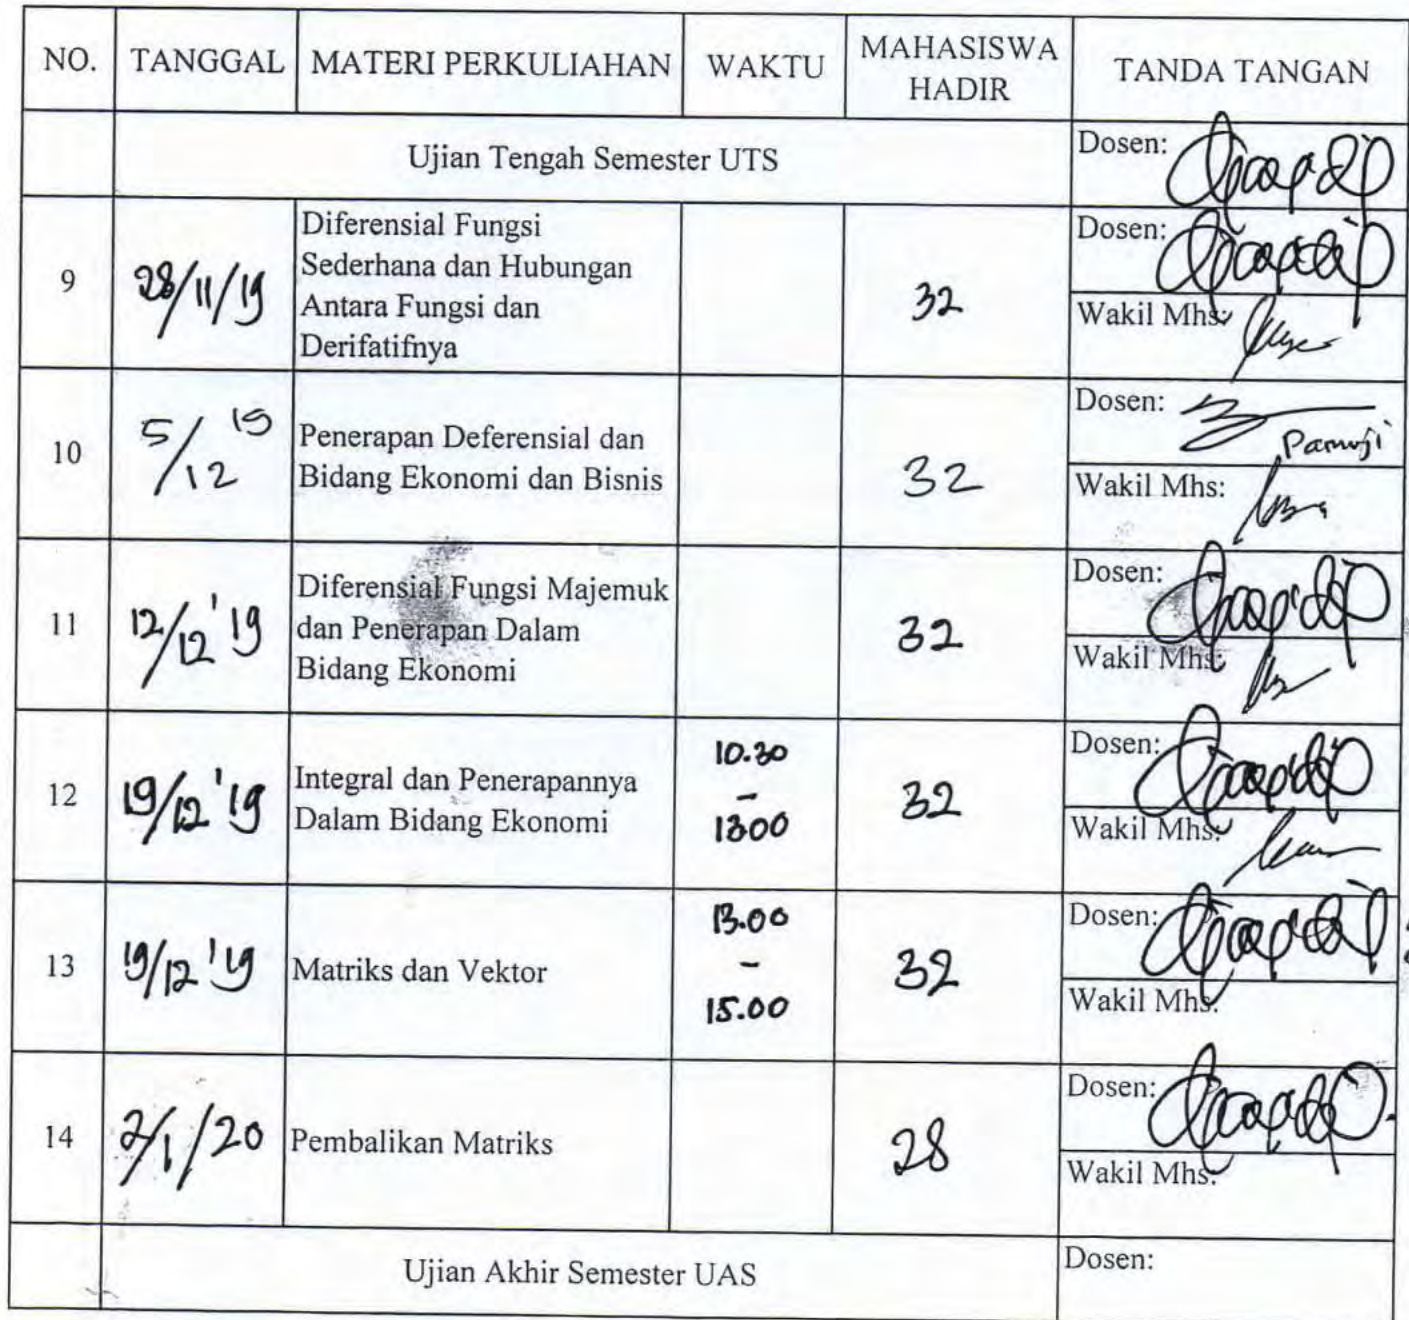 NO. TANGGAL MATERI PERKULIAHAN WAKTU MAHASISWA HADIR TANDA TANGAN
Ujian Tengah Semester UTS
Dosen:
9 28/11/19
Diferensial Fungsi
Sederhana dan Hubungan
Antara Fungsi dan
Derifatifnya
32
Dosen:
Wakil Mhs:
10 5/12 19
Penerapan Deferensial dan
Bidang Ekonomi dan Bisnis
32
Dosen:
Pamuji
Wakil Mhs:
11 12/12 '19
Diferensial Fungsi Majemuk
dan Penerapan Dalam
Bidang Ekonomi
32
Dosen:
Wakil Mhs:
12 19/12 '19
Integral dan Penerapannya
Dalam Bidang Ekonomi
10.30
-
1300
32
Dosen:
Wakil Mhs:
13 19/12 '19
Matriks dan Vektor
13.00
-
15.00
32
Dosen:
Wakil Mhs:
14 2/1/20
Pembalikan Matriks
28
Dosen:
Wakil Mhs:
Ujian Akhir Semester UAS
Dosen: